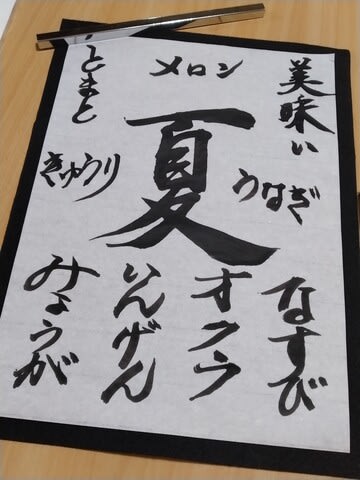 美味い
メロン
とまと
夏
うなぎ
きゅうり
なすび
オクラ
いんげん
みょうが